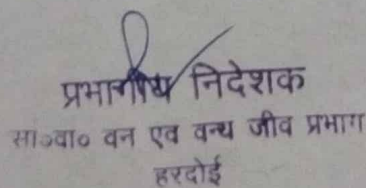 प्रभागीय निदेशक
सा०वा० वन एव वन्य जीव प्रभाग
हरदोई